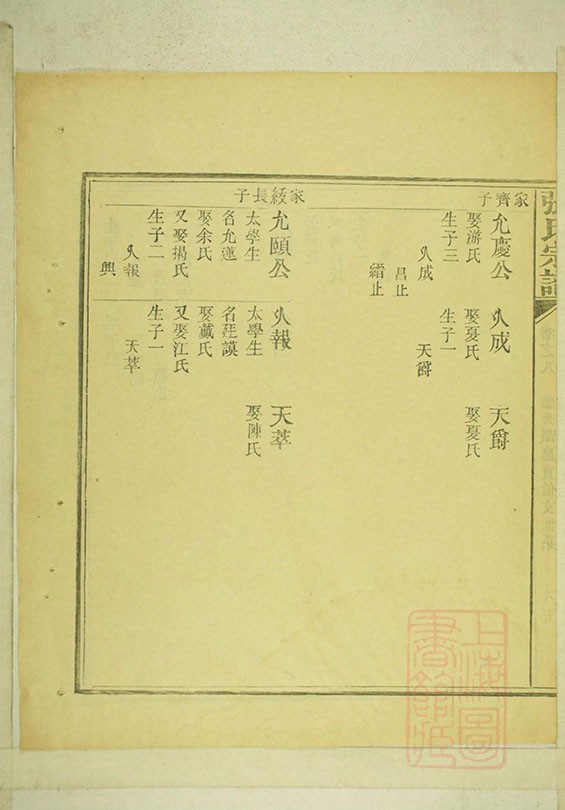 張氏宗譜
家齊子
允慶公
娶游氏
生子三
乆成
昌止
繼止
乆成
娶夏氏
生子一
天爵
天爵
娶夏氏
家綏長子
允頤公
太學生
名允蓮
娶余氏
又娶揭氏
生子二
乆報
興
乆報
太學生
娶戴氏
又娶江氏
生子一
天莘
天莘
娶陳氏
上海圖書館藏